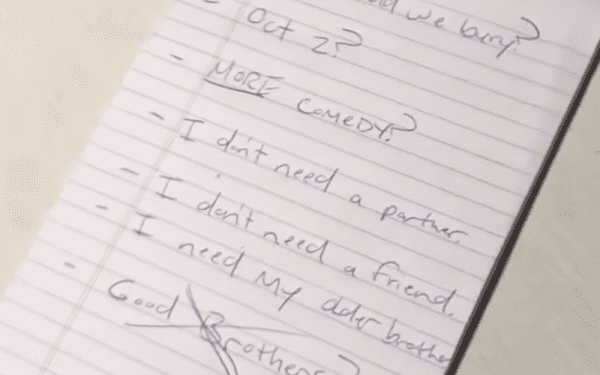 we bury?
Oct 2?
- MORE COMEDY?
- I don't need a partner.
- I don't need a friend.
- I need My older brother
- Good Brothers?